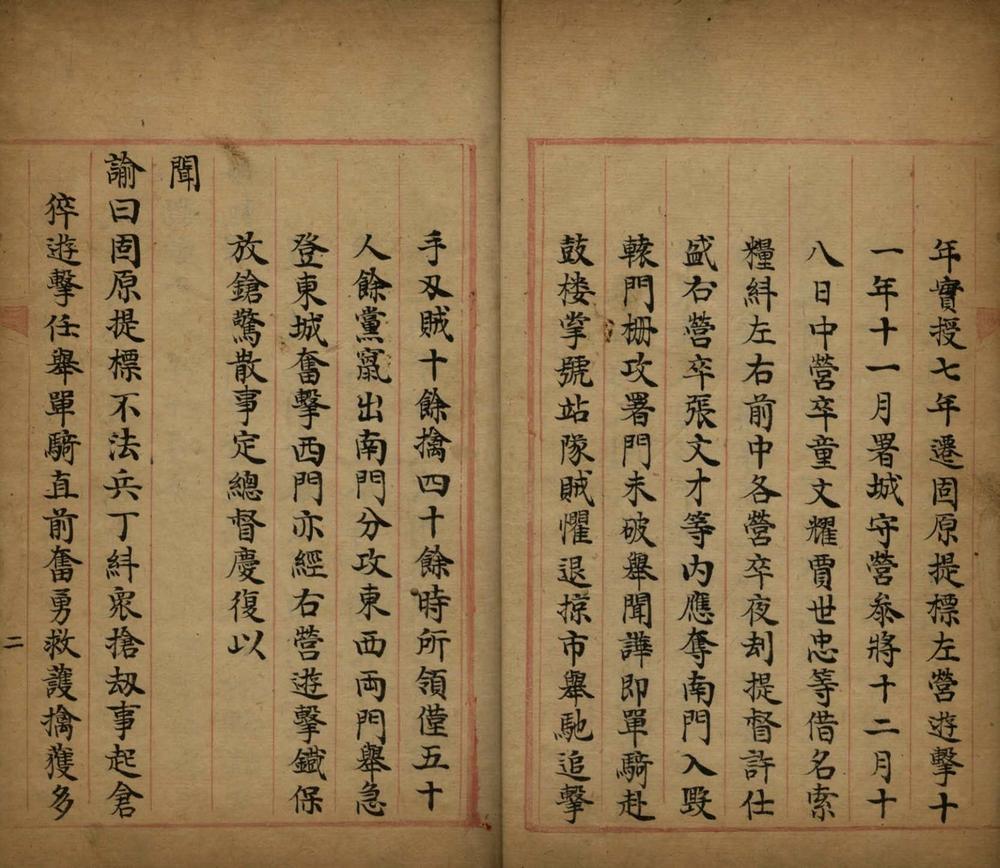 年實授七年遷固原提標左營遊擊十
一年十一月署城守營叅將十二月十
八日中營卒童文耀賈世忠等借名索
糧糾左右前中各營卒夜刦提督許仕
盛右營卒張文才等内應奪南門入毀
轅門柵攻署門未破舉聞譁即單騎赴
鼓楼掌號站隊賊懼退掠市舉馳追擊
手刃賊十餘擒四十餘時所領僅五十
人餘黨竄出南門分攻東西兩門舉急
登東城奮擊西門亦經右營遊擊鐵保
放鎗驚散事定總督慶復以
聞
諭曰固原提標不法兵丁糾衆搶刼事起倉
猝遊擊任舉單騎直前奮勇救護擒獲多
二